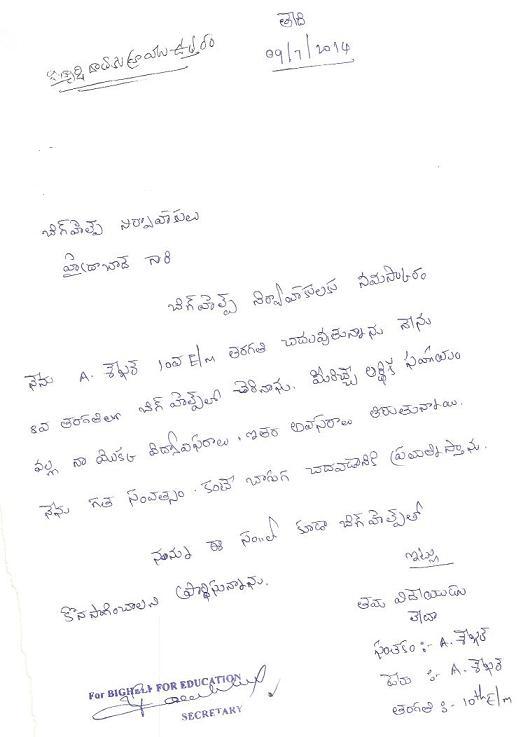 తేది
09/7/2014
బిగ్‌హెల్ప్ నిర్వాహకులు
హైద్రాబాద్ గారి
బిగ్‌హెల్ప్ నిర్వాహకులకు నమస్కారం
నేను A. శేఖర్ 10వ E/m తరగతి చదువుతున్నాను నేను
8వ తరగతిలో బిగ్ హెల్ప్‌లో చేరినాను. మీరిచ్చే ఆర్థిక సహాయం
వల్ల నా యొక్క విద్యావసరాలు, ఇతర అవసరాలు తీరుతున్నాయి.
నేను గత సంవత్సం. కంటే బాగుగ చదవడానికి ప్రయత్నిస్తాను.
నన్ను ఈ సం॥లో కూడా బిగ్‌హెల్ప్‌లో
కొనసాగించాలని ప్రార్థిస్తున్నాను.
ఇట్లు
తమ విధేయుడు
సంతకం :- A. శేఖర్
పేరు :- A. శేఖర్
తరగతి :- 10th E/m
For BIGHELP FOR EDUCATION
SECRETARY